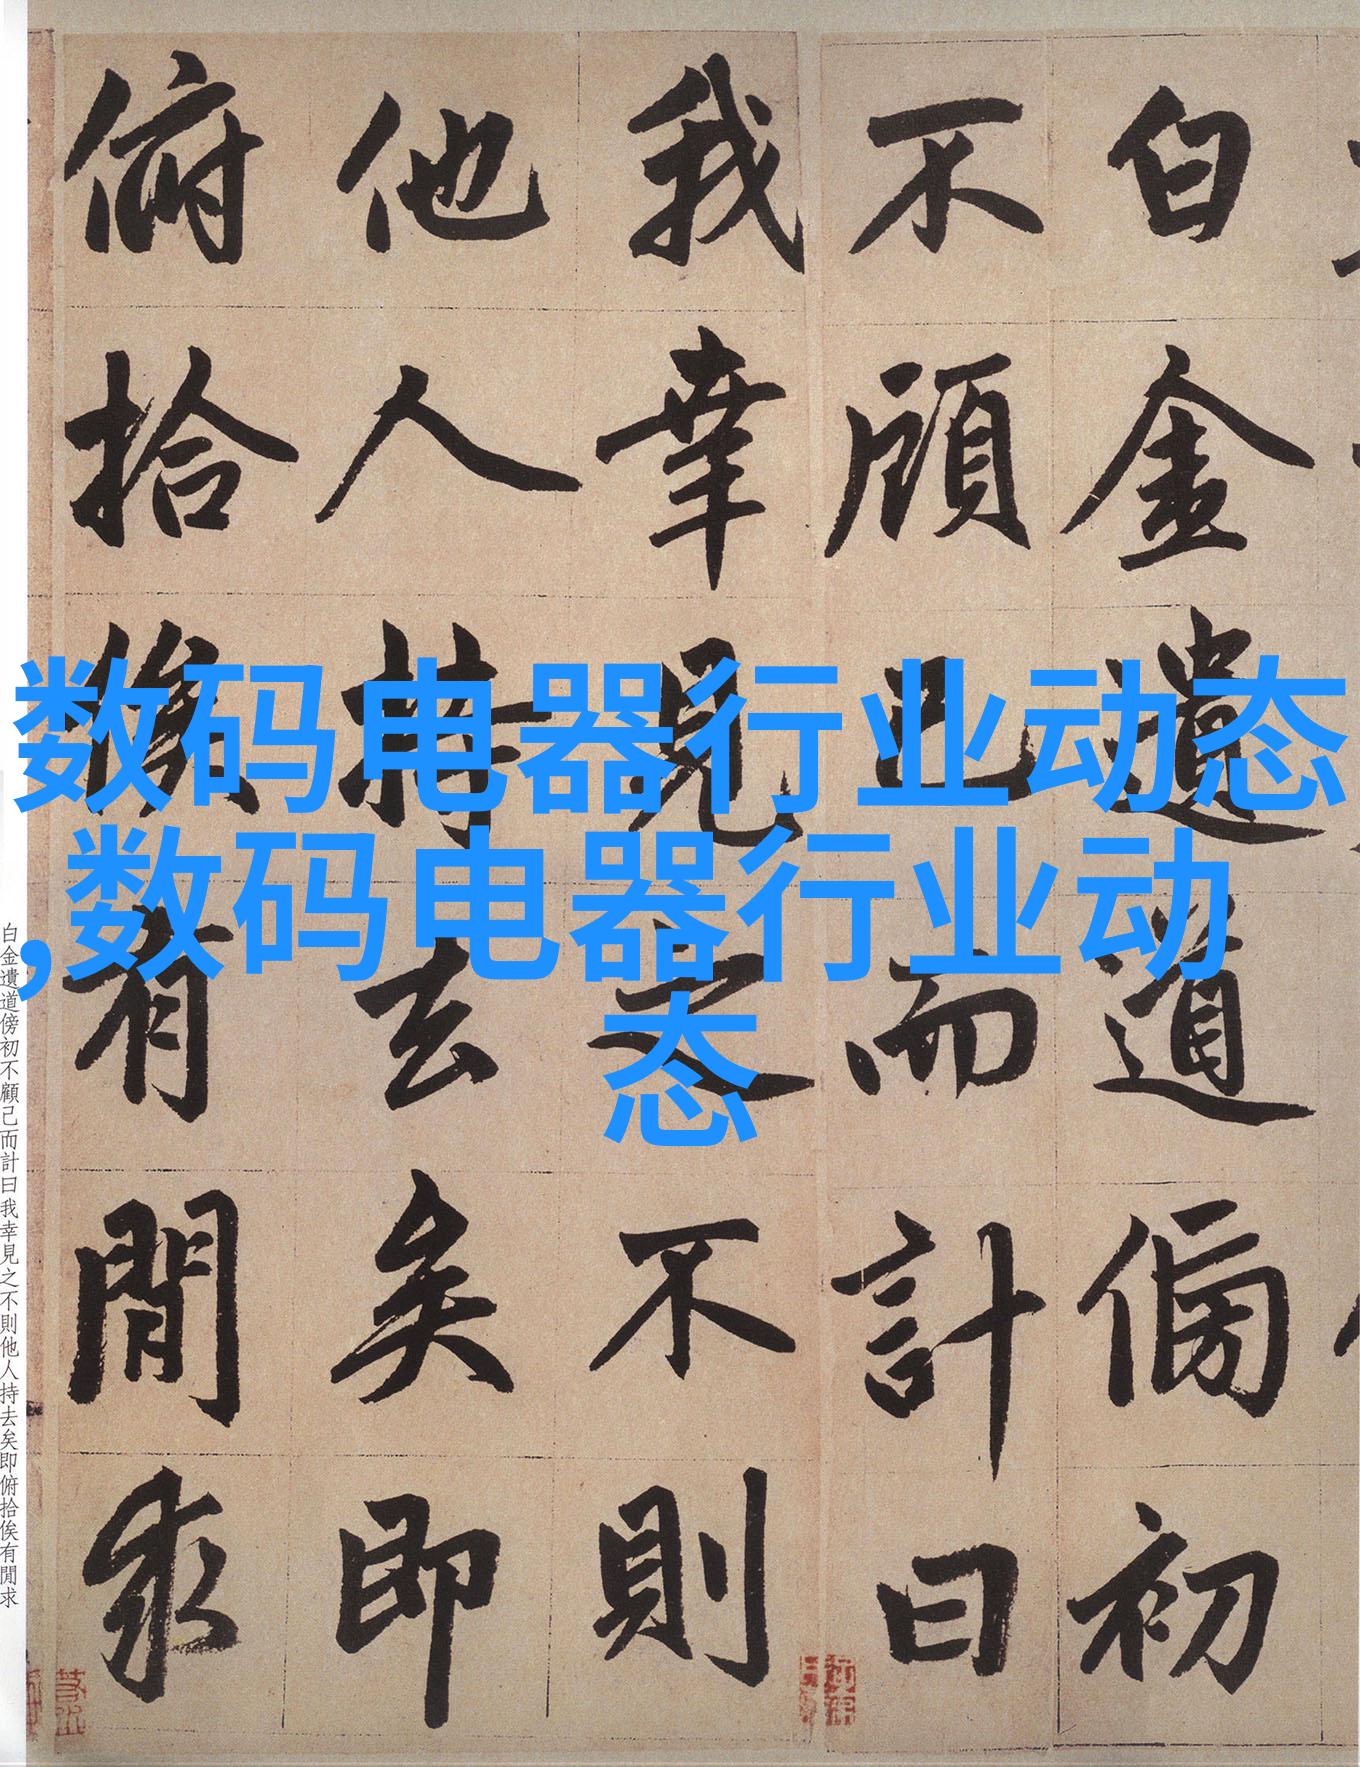 数码电器行业动态
,数码电器行业动
态
白金遺道傍初
不顧己而計曰
我幸見之不則
他人持去矣即
俯拾俟有閒求
白金遺道傍初不顧己而計曰我幸見之不則他人持去矣即俯拾俟有閒求